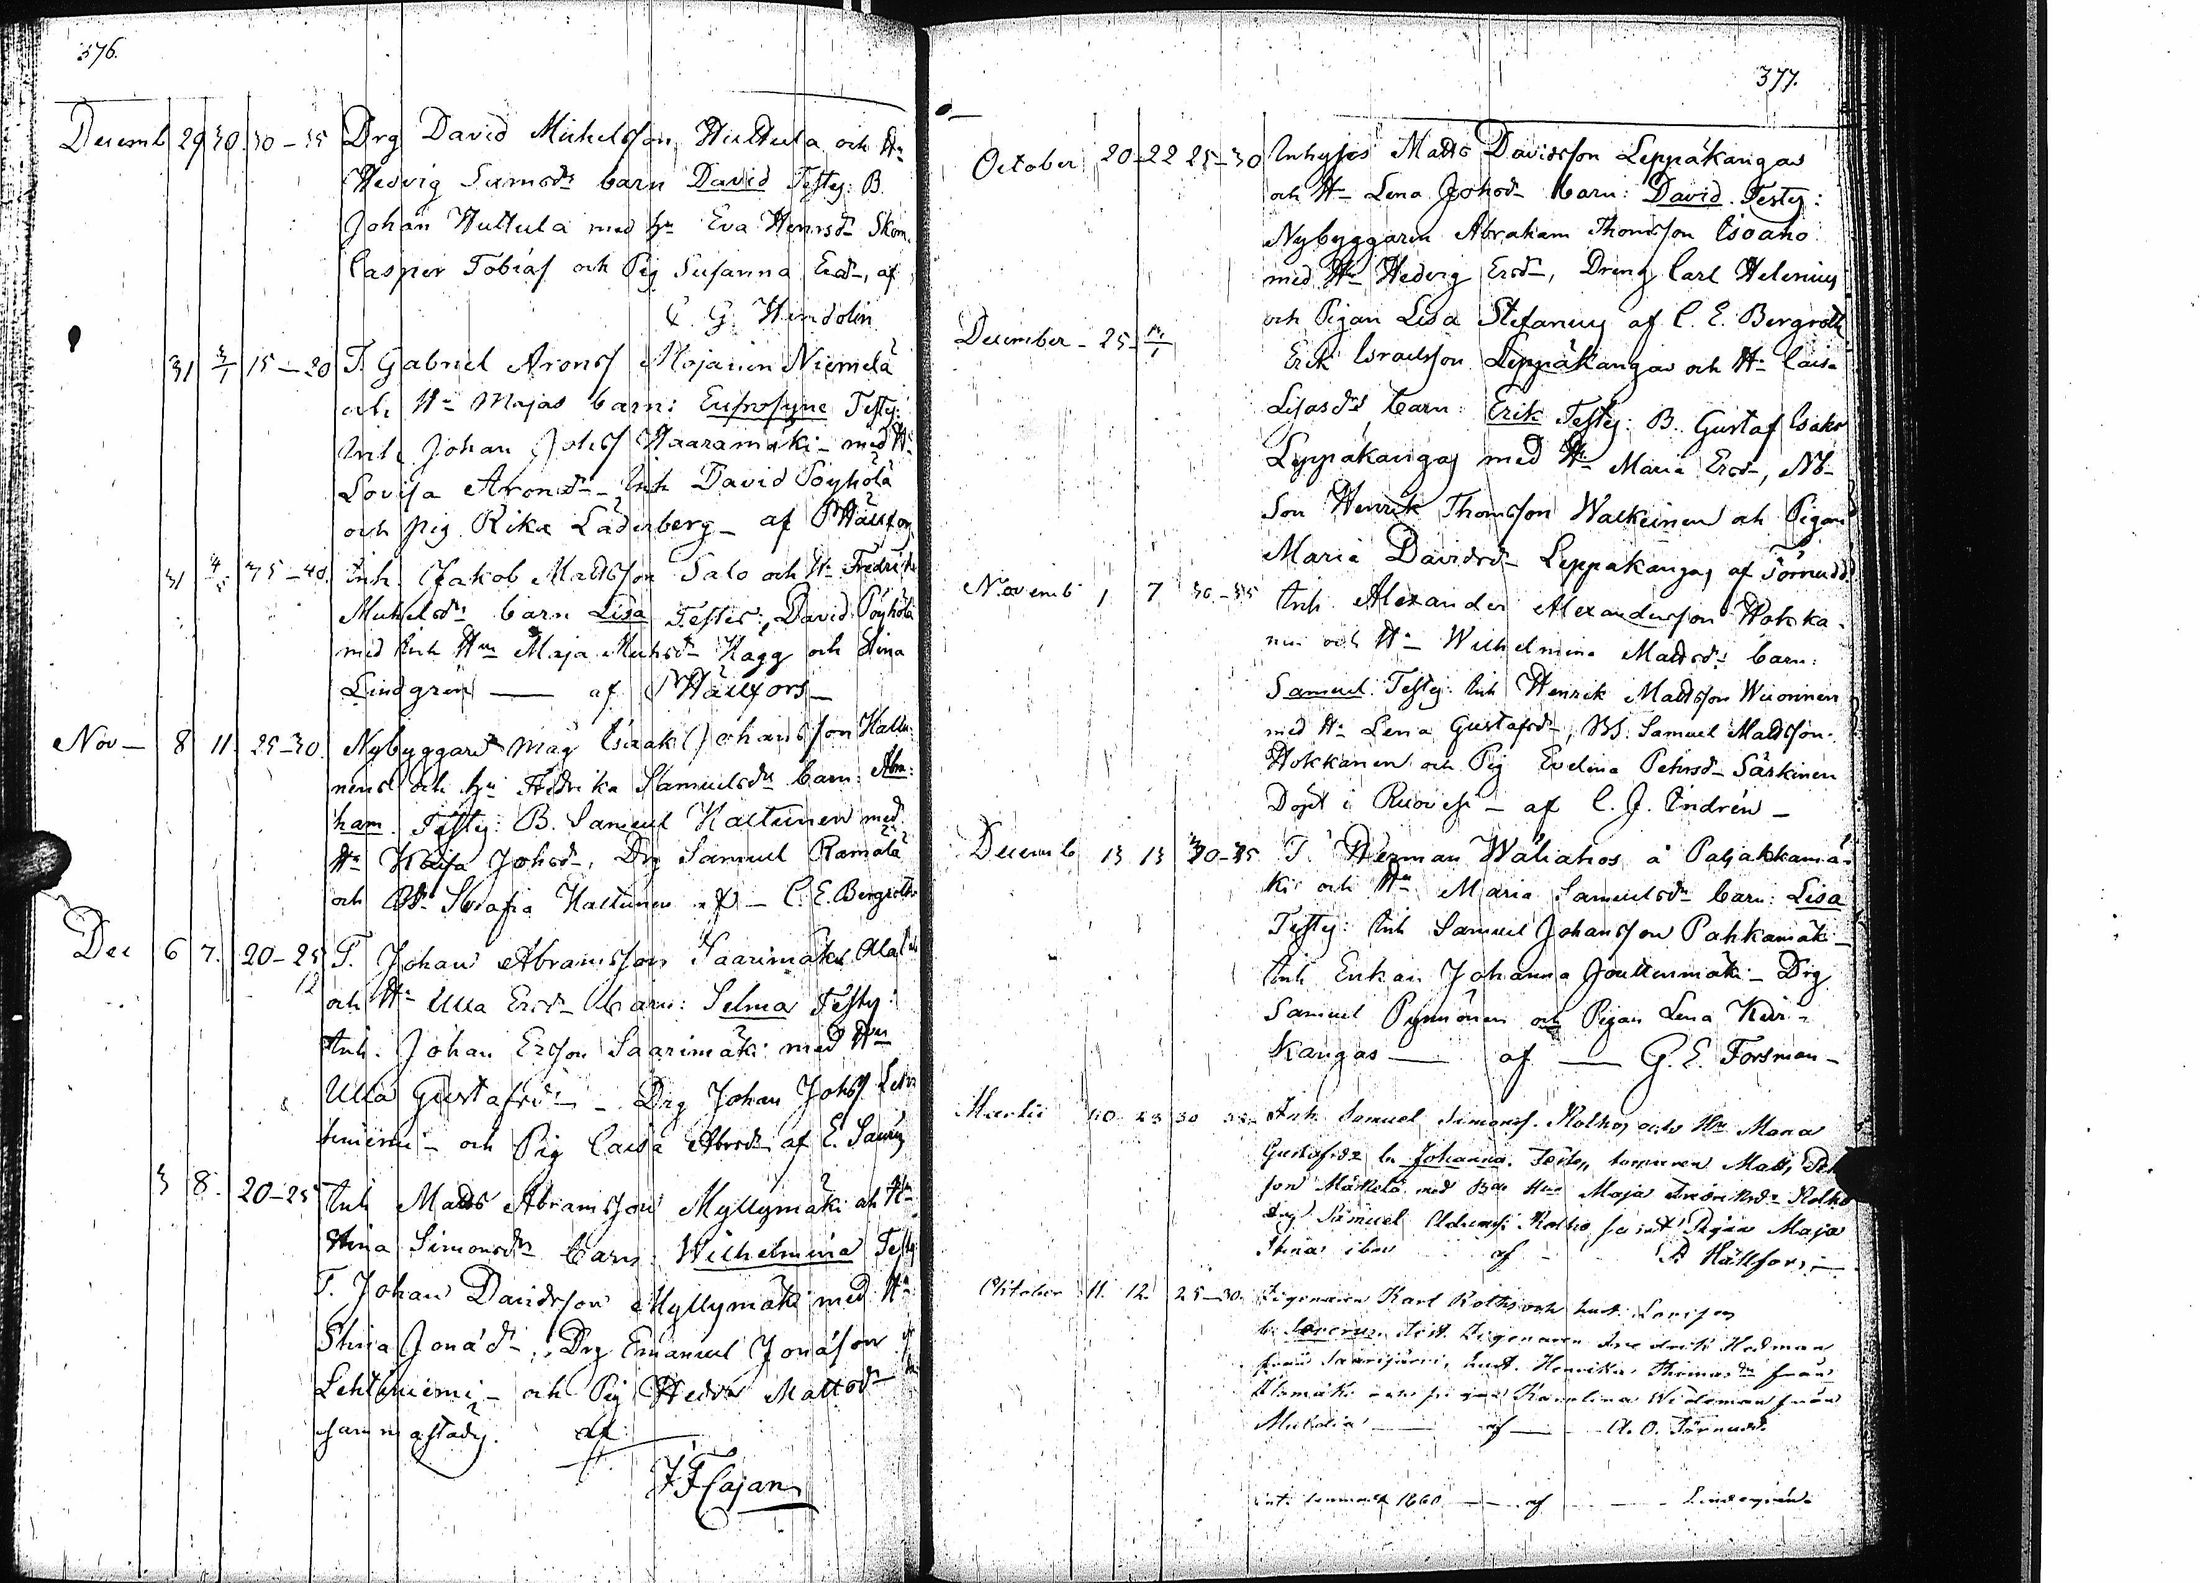 376.
Decemb 29 30 30-35 Drg David Michelsson Huttula och Hu
Hedvig Simsdr barn David Testes: B.
Johan Huttula med hu Eva Henrsdr Skom.
Casper Tobiass och Pig Susanna Ersdr, af
C. G. Hindolin
31 3/1 15-20 T. Gabriel Aronss Mojanen Niemelä
och Hu Majas barn: Eufrosyne Testes:
Inh Johan Johss Haaramäki - med Hu
Lovisa Aronsdr - Inh David Pöyhölä
och pig Rika Läderberg - af P Hällfors
31 4/5 35-40. Inh. Jakob Mattsson Salo och Hu Fredrika
Michelsdr barn Lisa Testes: David Pöyhölä
med Inh Hu Maja Michsdr Hagg och Stina
Lindgren — af P Hällfors -
Nov - 8 11 25-30. Nybyggare måg Isaak Johansson Kaltu-
nens och hu Fredrika Samuelsdr barn: Abra-
ham. Testes: B. Samuel Kaltunen med
Hu Kaisa Johsdr, Drg Samuel Ramälä
och Serafia Kaltunen af - C. E. Bergroth
Dec 6 7. 20-25 T. Johan Abramsson Saarimäki
och Hu Ulla Ersdr barn: Selma Testes:
Inh. Johan Ersson Saarimäki med Hu
Ulla Gustafsdr - Drg Johan Johss Leh-
niemi - och Pig Caisa Abrsdr af E.
3 8. 20-25 Inh Matts Abramsson Myllymäki och Hu
Stina Simonsdr barn: Wilhelmina Testes
T. Johan Davidsson Myllymäki med Hu
Stina Jonäd -, Drg Emanuel Jonasson
Lehtoniemi - och Pig Hedva Mattsdr
sammastädes. af
J F Cajan
377.
October 20-22 25-30 Inhyses Matts Davidsson Leppäkangas
och Hu Lena Johsdr barn: David. Testes:
Nybyggaren Abraham Thomsson Isoaho
med Hu Hedvig Ersdr, Dreng Carl Helenius
och Pigan Lisa Stefanus af C. E. Bergroth
December - 25 Erik Israelsson Leppäkangas och Hu Caisa
Lisasdr barn: Erik Testes: B. Gustaf Isaks
Leppäkangas med Hu Maria Ersdr, Nb-
Son Henrik Thomsson Walkeinen och Pigan
Maria Davidsdr Leppäkangas af Törnudd
Novemb 1 7 30-35 Inh. Alexander Alexandersson Hokka-
nen och Hu Wilhelmina Mattsdr barn:
Samuel. Testes: Inh Henrik Mattsson Wuorinen
med Hu Lena Gustafsdr, BS. Samuel Mattsson
Hokkanen och Pig Evelina Pehrsdr Särkinen
Döpt i Ruovesi - af C. J. Indrén -
Decemb 13 13 30-35 T. Herman Wäliahos å Paljakkamä-
ki och Hu Maria Samuelsdr barn: Lisa
Testes: Inh Samuel Johansson Pahkamäki -
Inh Enkan Johanna Jouttenmäki - Drg
Samuel Pynnönen och Pigan Lena Kivi-
kangas — af — G. E. Forsman -
Martii 10 23 30 35 Inh Samuel Simonss. Kolkos och Hu Maria
Gustafsdr b. Johanna. Testes, torparen Matts
son Märkelä med Hu Maja Fredriksdr Kolko
drg Samuel Kolho samt Pigan Maja
Stina ibm af - P Hällfors -
Oktober 11. 12 25-30. Zigenaren Karl Rothovn och hust. Lovisas
b. test. Zigenaren Fredrik Hedman
från Saarijärvi, hust. Henrika Thomasdr från
Alamäki och pigan Karolina Widsman från
Multia — af — A. O. Törnudd.
1860 — af — Lindegrén.